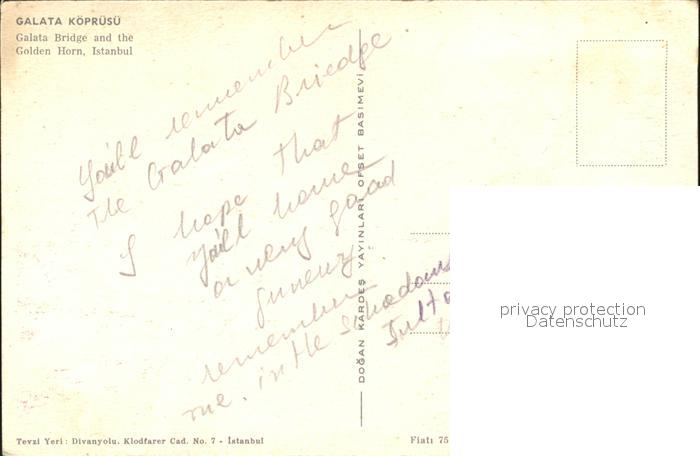 GALATA KÖPRÜSÜ
Galata Bridge and the
Golden Horn, Istanbul
You'll remember
The Galata Briedge.
I hope that
you'll
a very goad
remember
me. in the
DOĞAN KARDEŞ YAYINLARI OFSET BASIMEVİ
Tevzi Yeri: Divanyolu. Klodfarer Cad. No. 7 - İstanbul
Fiatı 75
privacy protection
Datenschutz